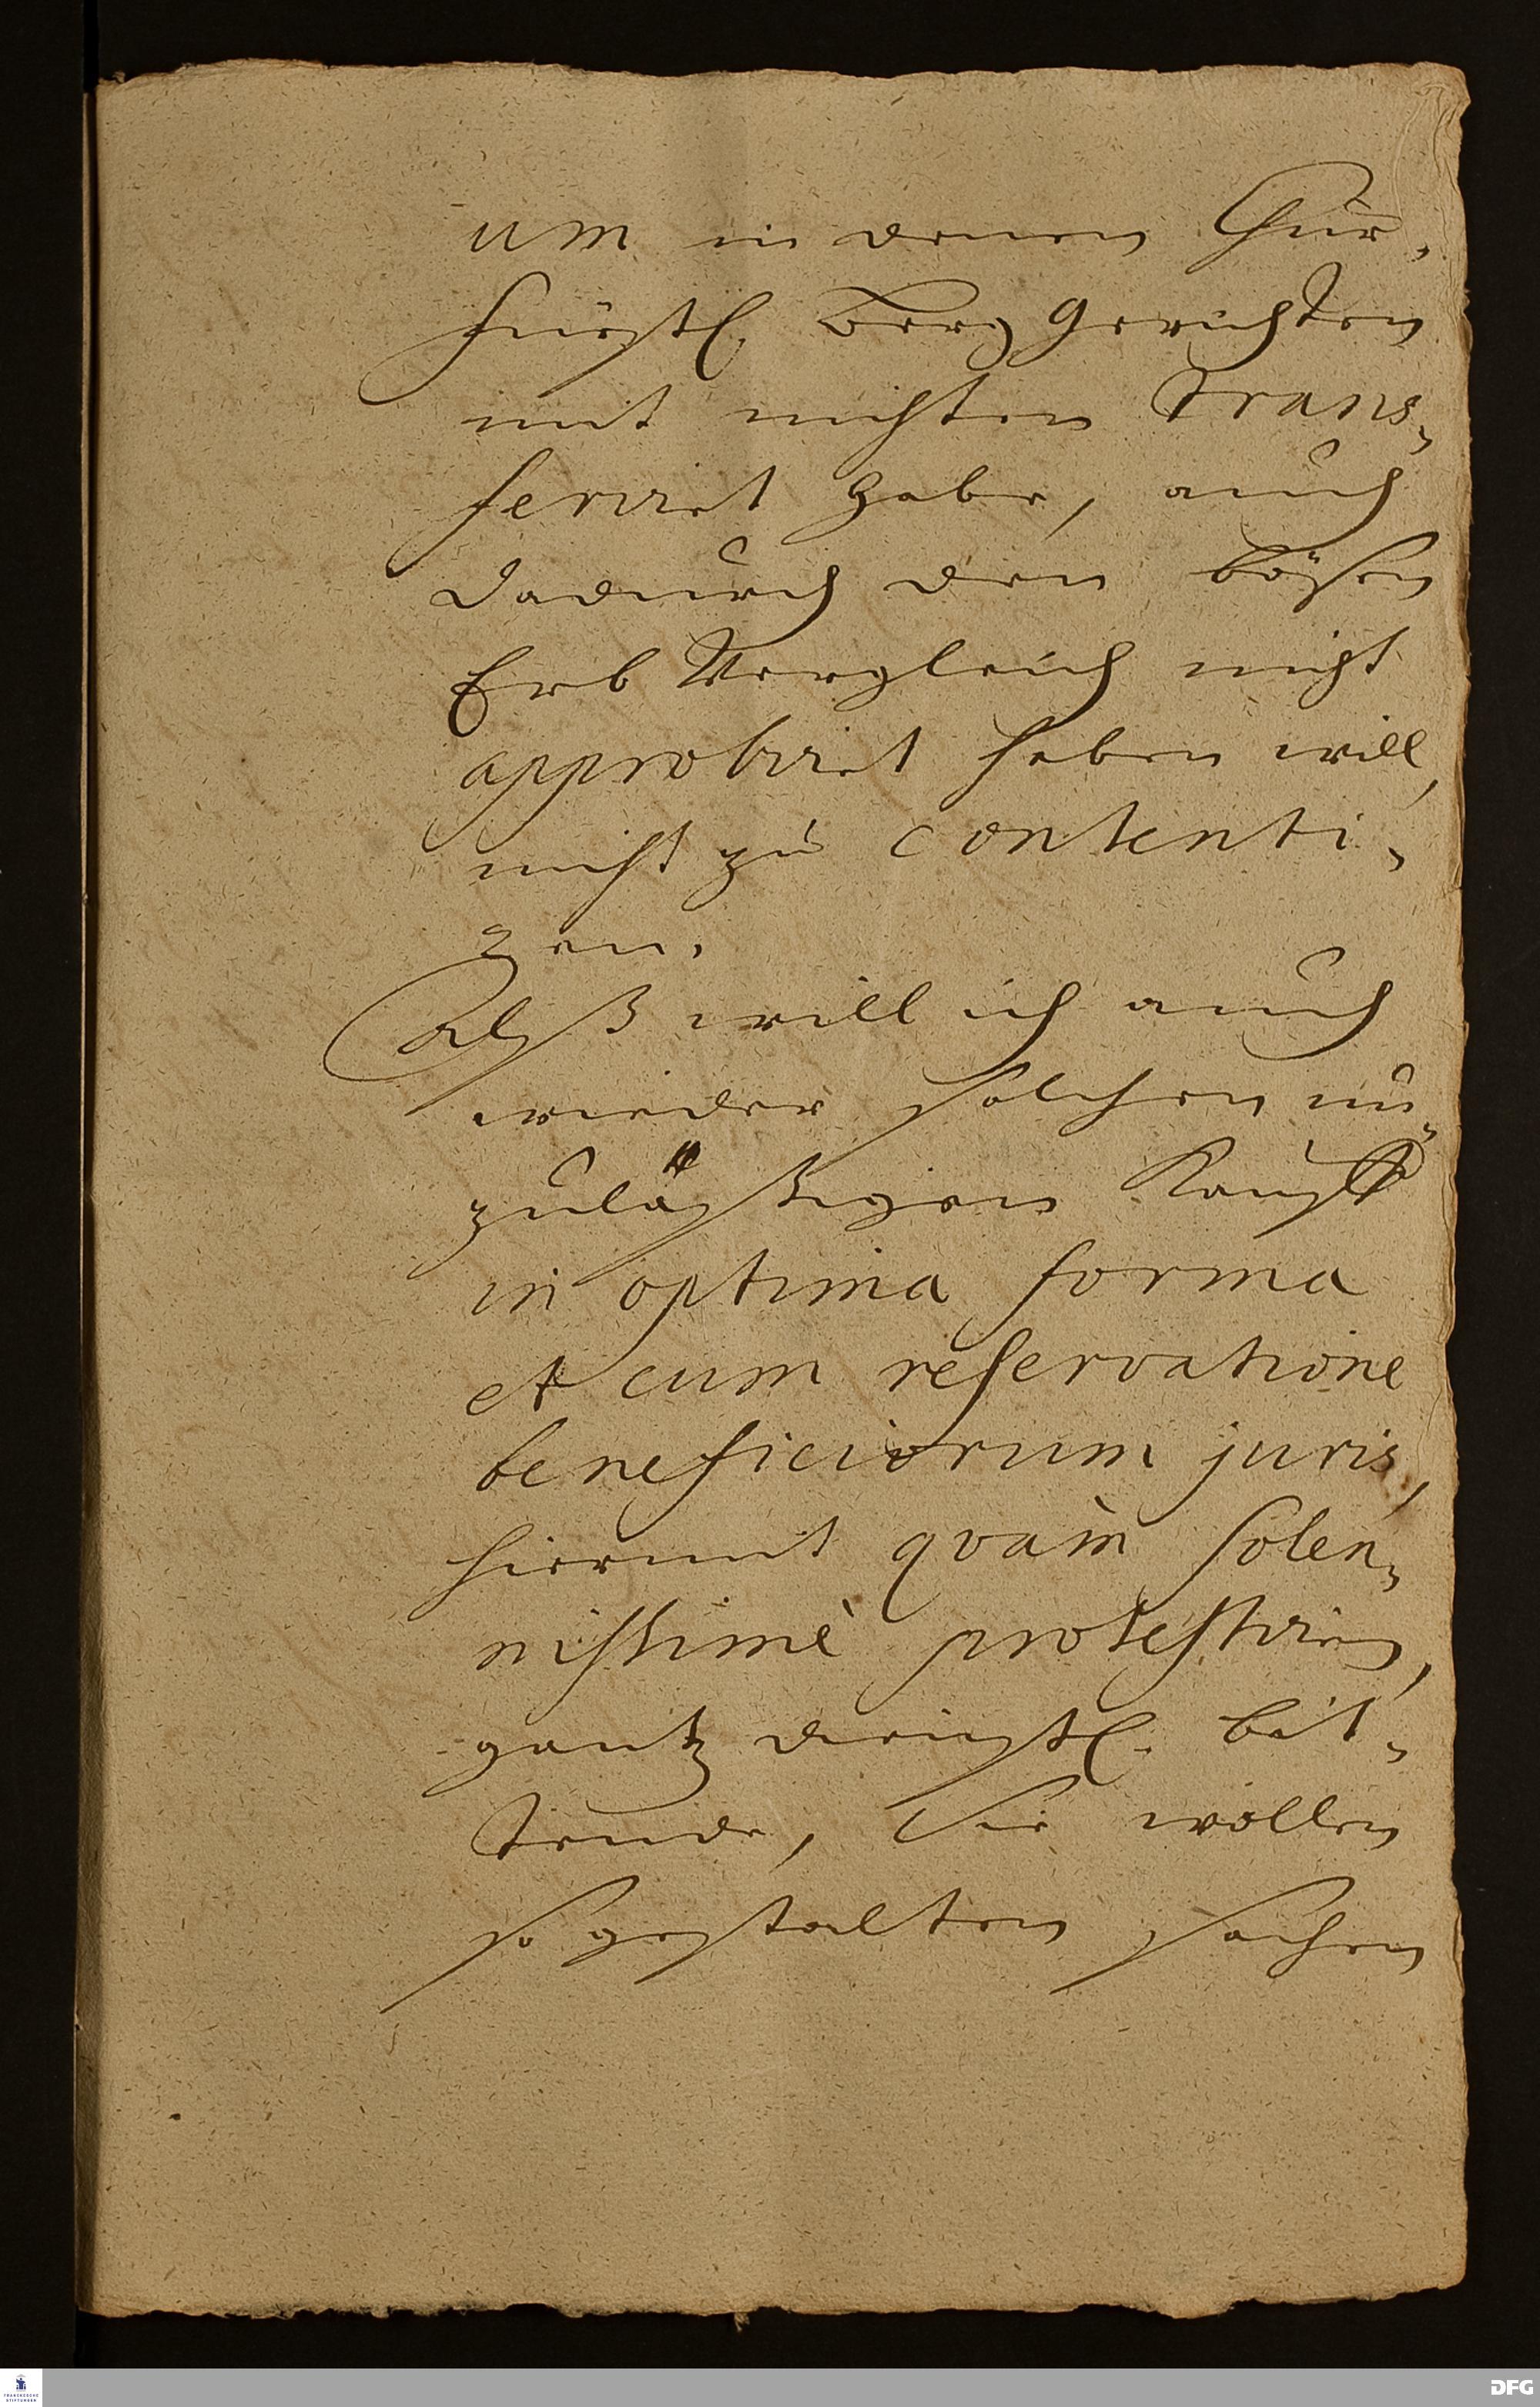 um in denen Chur-
fürstl Berg Gerichten
mit nichten trans-
feriret habe, auch
dadurch den bösen
Erb Vergleich nicht
approbiret haben will,
nicht zu contenti-
ren.
Alß will ich auch
wieder solchen un-
zuläßigen Kauff
in optima forma
et cum reservatione
beneficiorum juris,
hiermit qvam̀ solen-
nissimè protestiren,
gantz dienstl. bit-
tende, Sie wollen
so gestalten sachen
FRANCKESCHE
STIFTUNGEN
DFG